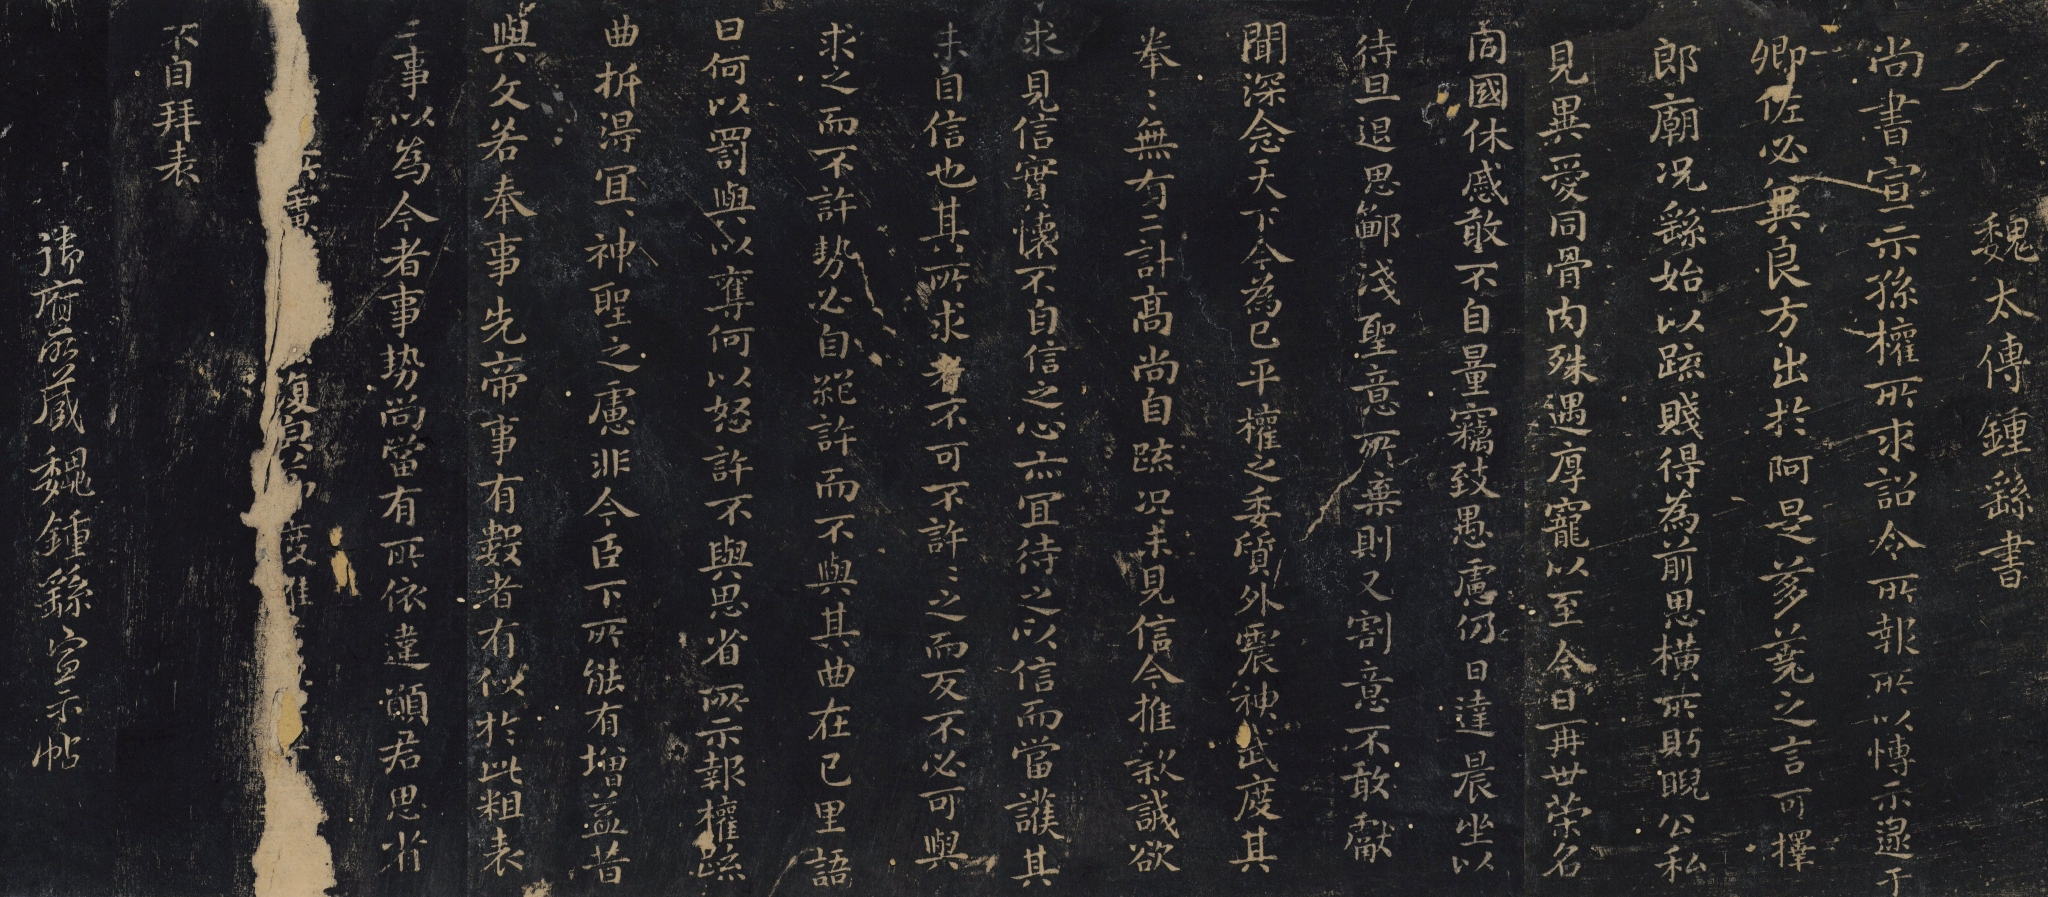 魏太傅鍾繇書
尚書宣示孫權所求詔令所報所以博示逮于
卿佐必無良方出於阿是芻蕘之言可擇
郎廟況繇始以疏賤得為前恩橫所眄睨公私
見異愛同骨肉殊遇厚寵以至今日再世榮名
同國休慼敢不自量竊致愚慮仍日達晨坐以
待旦退思鄙淺聖意所棄則又割意不敢獻
聞深念天下今為已平權之委質外震神武度其
拳〻無有二計高尚自疏況未見信今推款誠欲
求見信實懷不自信之心亦宜待之以信而當護其
未自信也其所求者不可不許〻之而反不必可與
求之而不許勢必自絕許而不與其曲在己里語
曰何以罰與以奪何以怒許不與思省所示報權疏
曲折得宜〻神聖之慮非今臣下所能有增益昔
與文若奉事先帝事有數者有似於此粗表
二事以為今者事勢尚當有所依違願君思省
復 度
不自拜表
府所藏魏鍾繇宣示帖